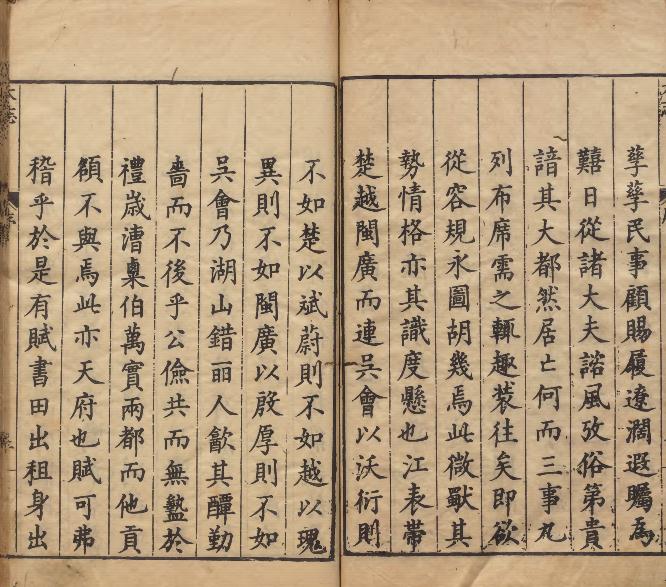 孳孳民事顧賜履遼濶遐矚為
囏日從諸大夫諮風攷俗第貴
諳其大都然居亡何而三事九
列布席需之輒趣裝往矣即欲
從容規永圖胡幾焉此微獸其
勢情格亦其識度懸也江表帶
楚越閩廣而連吳會以沃衍則
不如楚以斌蔚則不如越以瑰
異則不如閩廣以殷厚則不如
吳會乃湖山錯丽人歙其醰勤
嗇而不後乎公儉共而無盭於
禮歲漕稾伯萬實兩都而他貢
額不與焉此亦天府也賦可弗
稽乎於是有賦書田出租身出